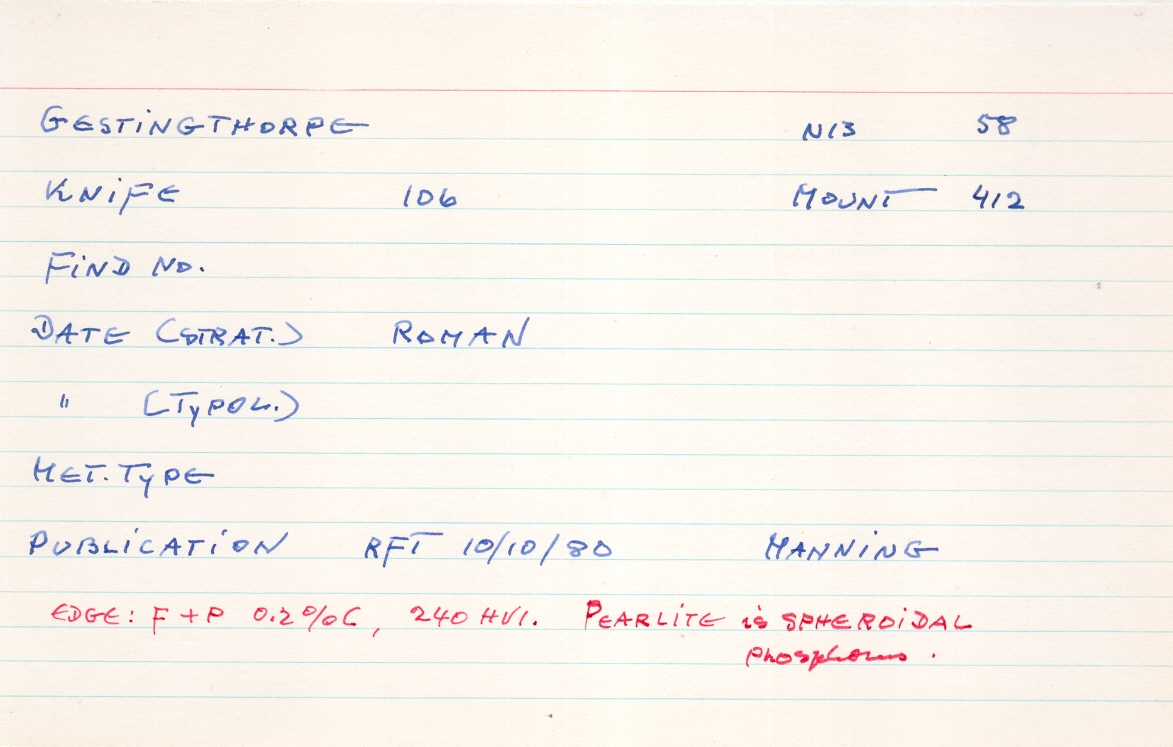 GESTINGTHORPE N13 58
KNiFE 106 MOUNT 412
FiND NO.
DATE (STRAT.) ROMAN
" (TYPOL.)
MET. TYPE
PUBLICATiON RFT 10/10/80 MANNiNG
EDGE: F + P 0.2%C, 240 HV1. PEARLiTE is SPHEROiDAL
phosphorus.